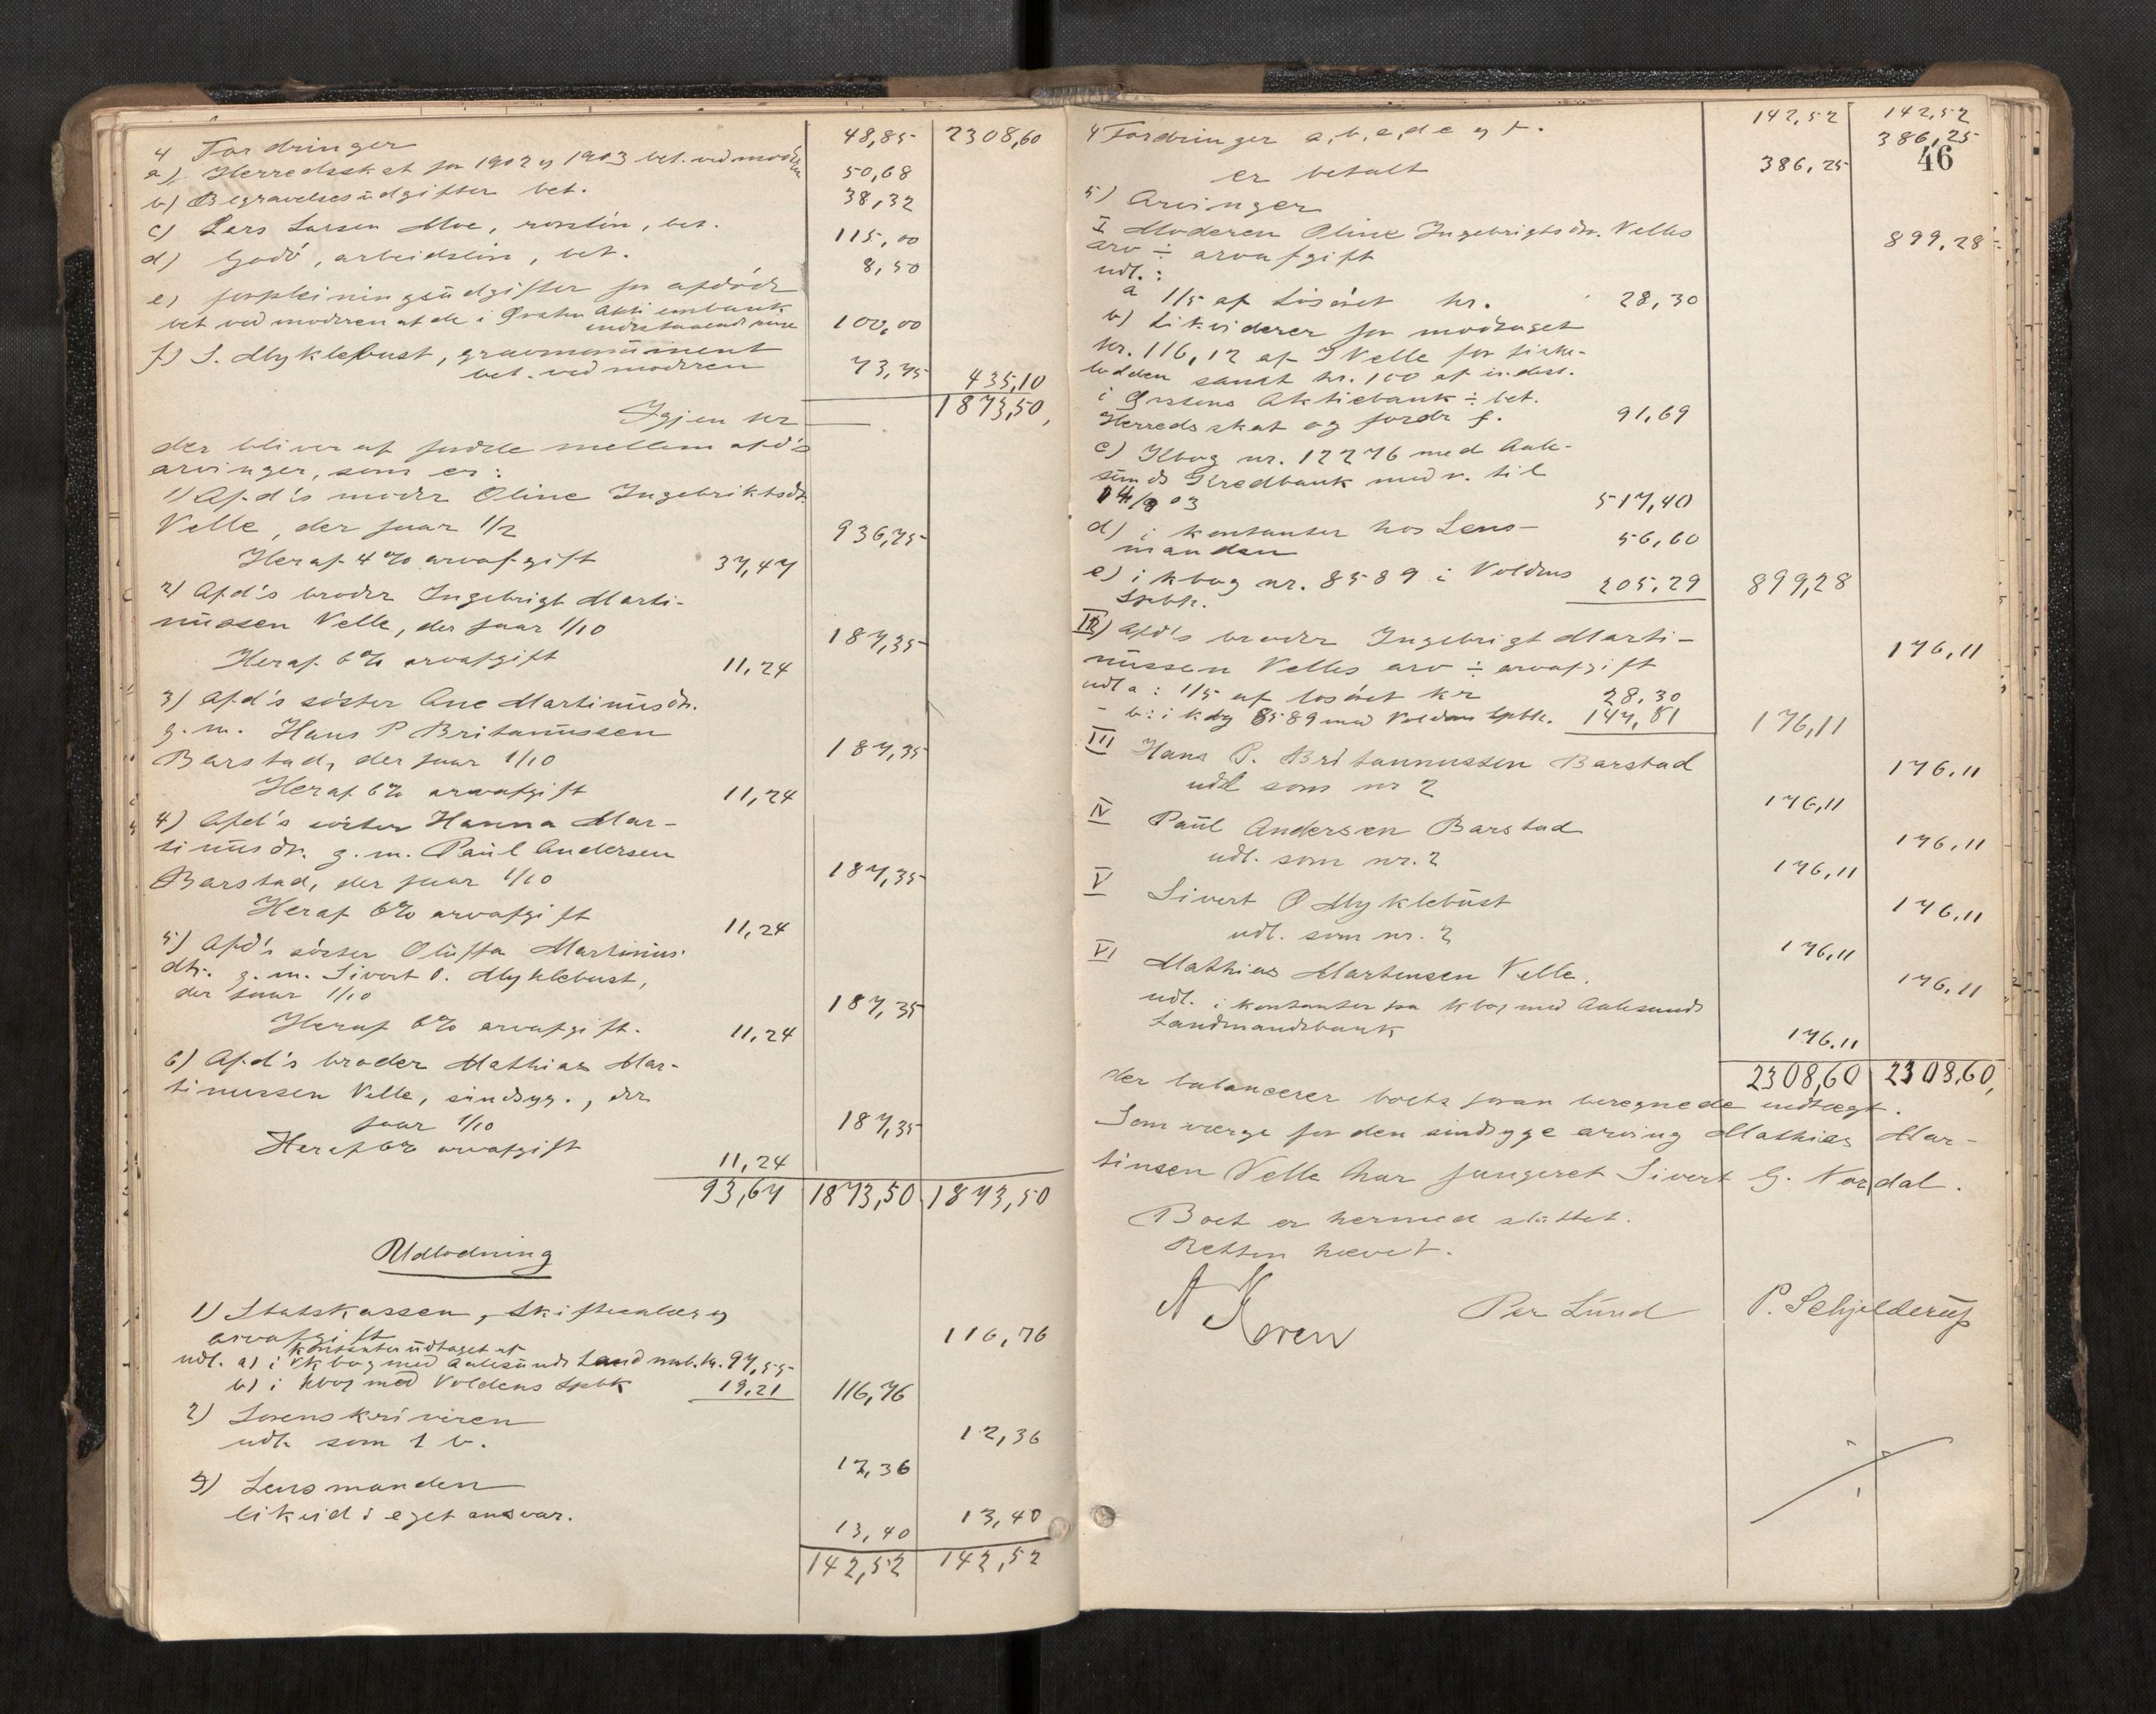 4 Fordringer 48,85 2308,60
a) Herredsskat for 1902 og 1903 bet. ved moderen 50,68
b) Begravelsesüdgifter bet. 38,32
c) Lars Larsen Moe, rosslön, bet. 115,00
d) Godö, arbeidslön, bet. 8,50
e) forpleiningsüdgifter for afdöde
bet ved moderen af de i Ørsten Aktiembank
indestaaende penge 100,00
f) S. Myklebust, gravmonüment
bet. ved moderen 73,75 435,10
Igjen kr 1873,50,
der bliver at fordele mellem afd's
arvinger, som er:
1) Afd's moder Oline Ingebriktsdr.
Velle, der faar 1/2 936,75
Heraf 4% arvafgift 37,47
2) Afd's broder Ingebrigt Marti-
nüssen Velle, der faar 1/10 187,35
Heraf 6% arvafgift 11,24
3) Afd's söster Ane Martinüsdr.
g. m. Hans P Britanüssen
Barstad, der faar 1/10 187,35
Heraf 6% arvafgift 11,24
4) Afd's söster Hanna Mar-
tinüsdr. g. m. Paül Andersen
Barstad, der faar 1/10 187,35
Heraf 6% arvafgift 11,24
5) Afd's söster Olüffa Martinüs-
dtr. g. m. Sivert O. Myklebust,
der faar 1/10 187,35
Heraf 6% arvafgift. 11,24
6) Afd's broder Mathias Mar-
tinussen Velle, sindsyg., der
faar 1/10 187,35
Heraf 6% arvafgift 11,24
93,67 1873,50 1873,50
Udlodning
1) Statskassen, skiftesalær og
arvafgift 116,76
kontanter üdtaget af
udl. a) i kbog med Aalesünds Landmnb. kr. 97,55
b) i kbog med Voldens Spbk 19,21 116,76
2) Sorenskriveren 12,36
udl. som 1 b. 12,36
3) Lensmanden
likvid i eget ansvar. 13,40 13,40
142,52 142,52
142,52 142,52
4 Fordringer a, b, c, d e og f. 386,25
46
er betalt 386,25
5) Arvinger
I Moderen Oline Ingebrigtsdr. Velles
arv ÷ arvafgift 899,28
udl.:
a 1/5 af Lösöret kr. 28,30
b) Likviderer for modtaget
kr. 116,12 af I Velle for
samt kr. 100 af indest.
i Ørstens Aktiebank ÷ bet.
Herredsskat og fordr f. 91,69
c) Kbog nr. 12276 med Aale-
sünds Kredbank med r. til
14/9 03 517,40
d) i kontanter hos Lens-
manden 56,60
e) i kbog nr. 8589 i Voldens
Spbk. 205,29 899,28
II) Afd's broder Ingebrigt Marti-
nüssen Velles arv ÷ arvafgift 176,11
udl a: 1/5 af losöret kr 28,30
- b: i kbg 8589 med Voldens Spbk. 147,81 176,11
III Hans P. Britannussen Barstad 176,11
udl som nr 2 176,11
IV Paül Andersen Barstad 176,11
udl. som nr. 2 176,11
V Sivert O Myklebüst 176,11
udl. som nr. 2 176,11
VI Mathias Martinsen Velle. 176,11
udl. i kontanter fra kbog med Aalesunds
Landmandsbank 176.11
2308,60 2308,60,
der balancerer boets foran beregnede indtægt.
Som værge for den sindsyge arving Mathias Mar-
tinsen Velle har fungeret Sivert G. Nordal.
Boet er hermed slüttet.
Retten hævet.
A Koren Per Lünd P. Schjelderüp